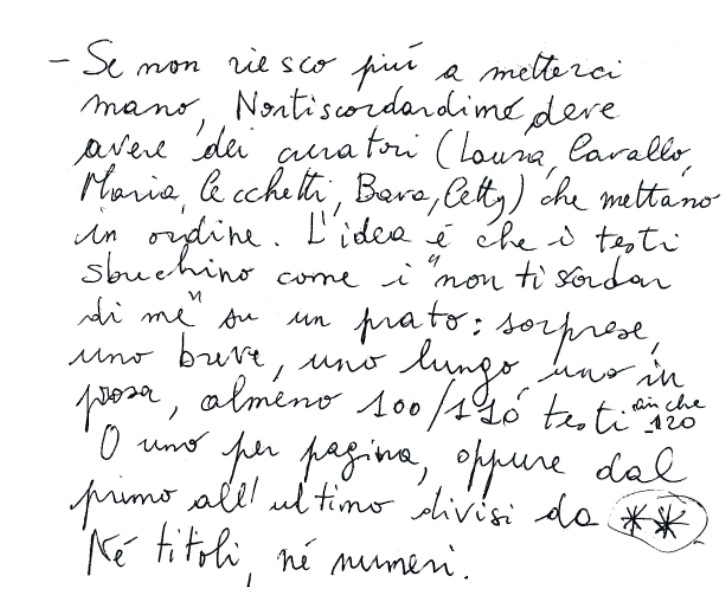 - Se non riesco più a metterci
mano, Nontiscordardimé deve
avere dei curatori (Laura, Cavallo,
Maria, Cecchetti, Bara, Cetty) che mettano
in ordine. L'idea è che i testi
sbuchino come i "non ti scordar
di me" su un prato: sorprese,
uno breve, uno lungo, uno in
prosa, almeno 100/110 testi anche 120
O uno per pagina, oppure dal
primo all'ultimo divisi da **
Né titoli, né numeri.